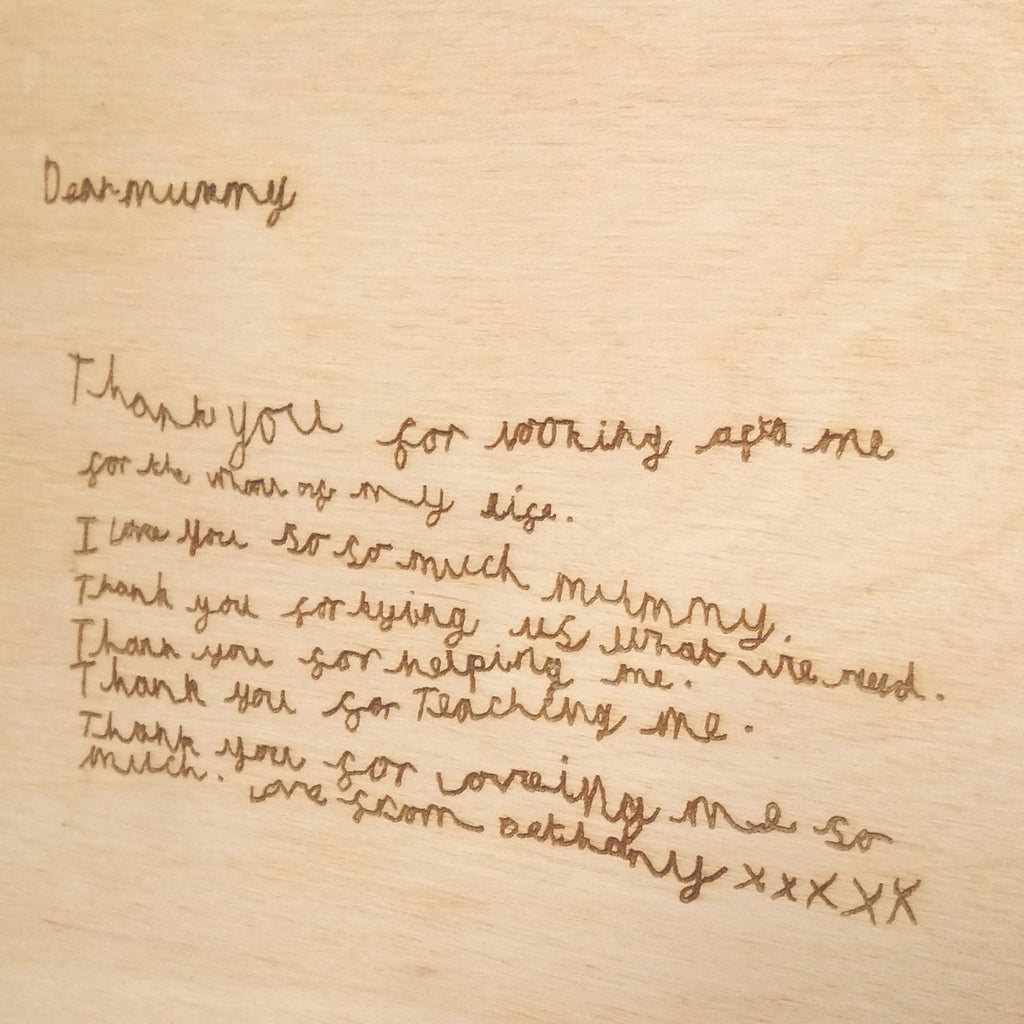 Dear mummy
Thank you for looking after me
for the whole of my life.
I Love you so so much mummy.
Thank you for bying us what we need.
Thank you for helping me.
Thank you for Teaching me.
Thank you for Loveing me so
much. Love from Bethany xxxxx